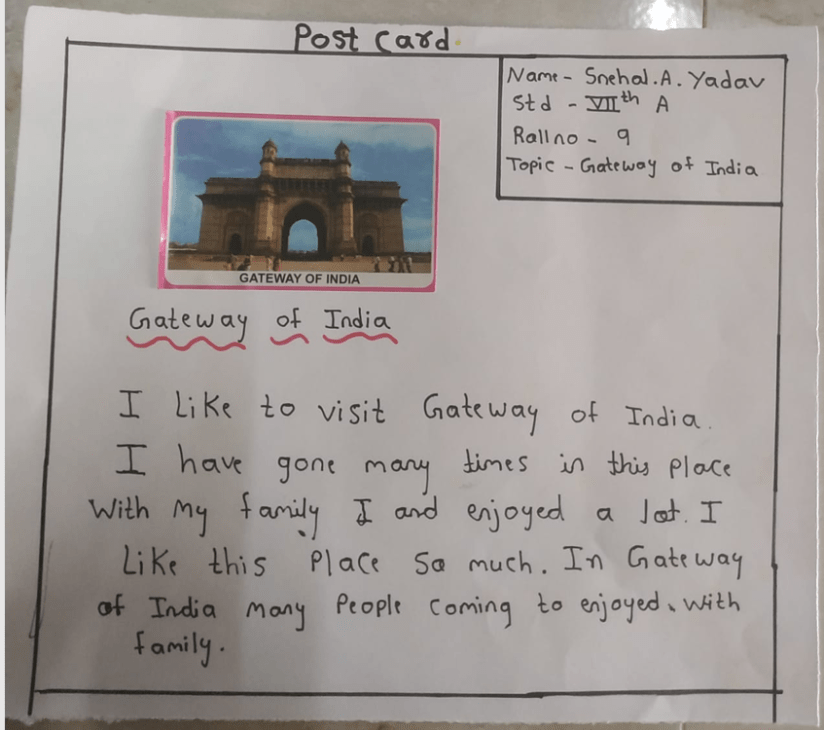 Post Card
Name - Snehal.A.Yadav
Std - VIIth A
Rallno - 9
Topic - Gateway of India
GATEWAY OF INDIA
Gateway of India
I Like to visit Gateway of India.
I have gone many times in this place
With My family I and enjoyed a lot. I
Like this Place So much. In Gateway
of India many People coming to enjoyed. with
family.